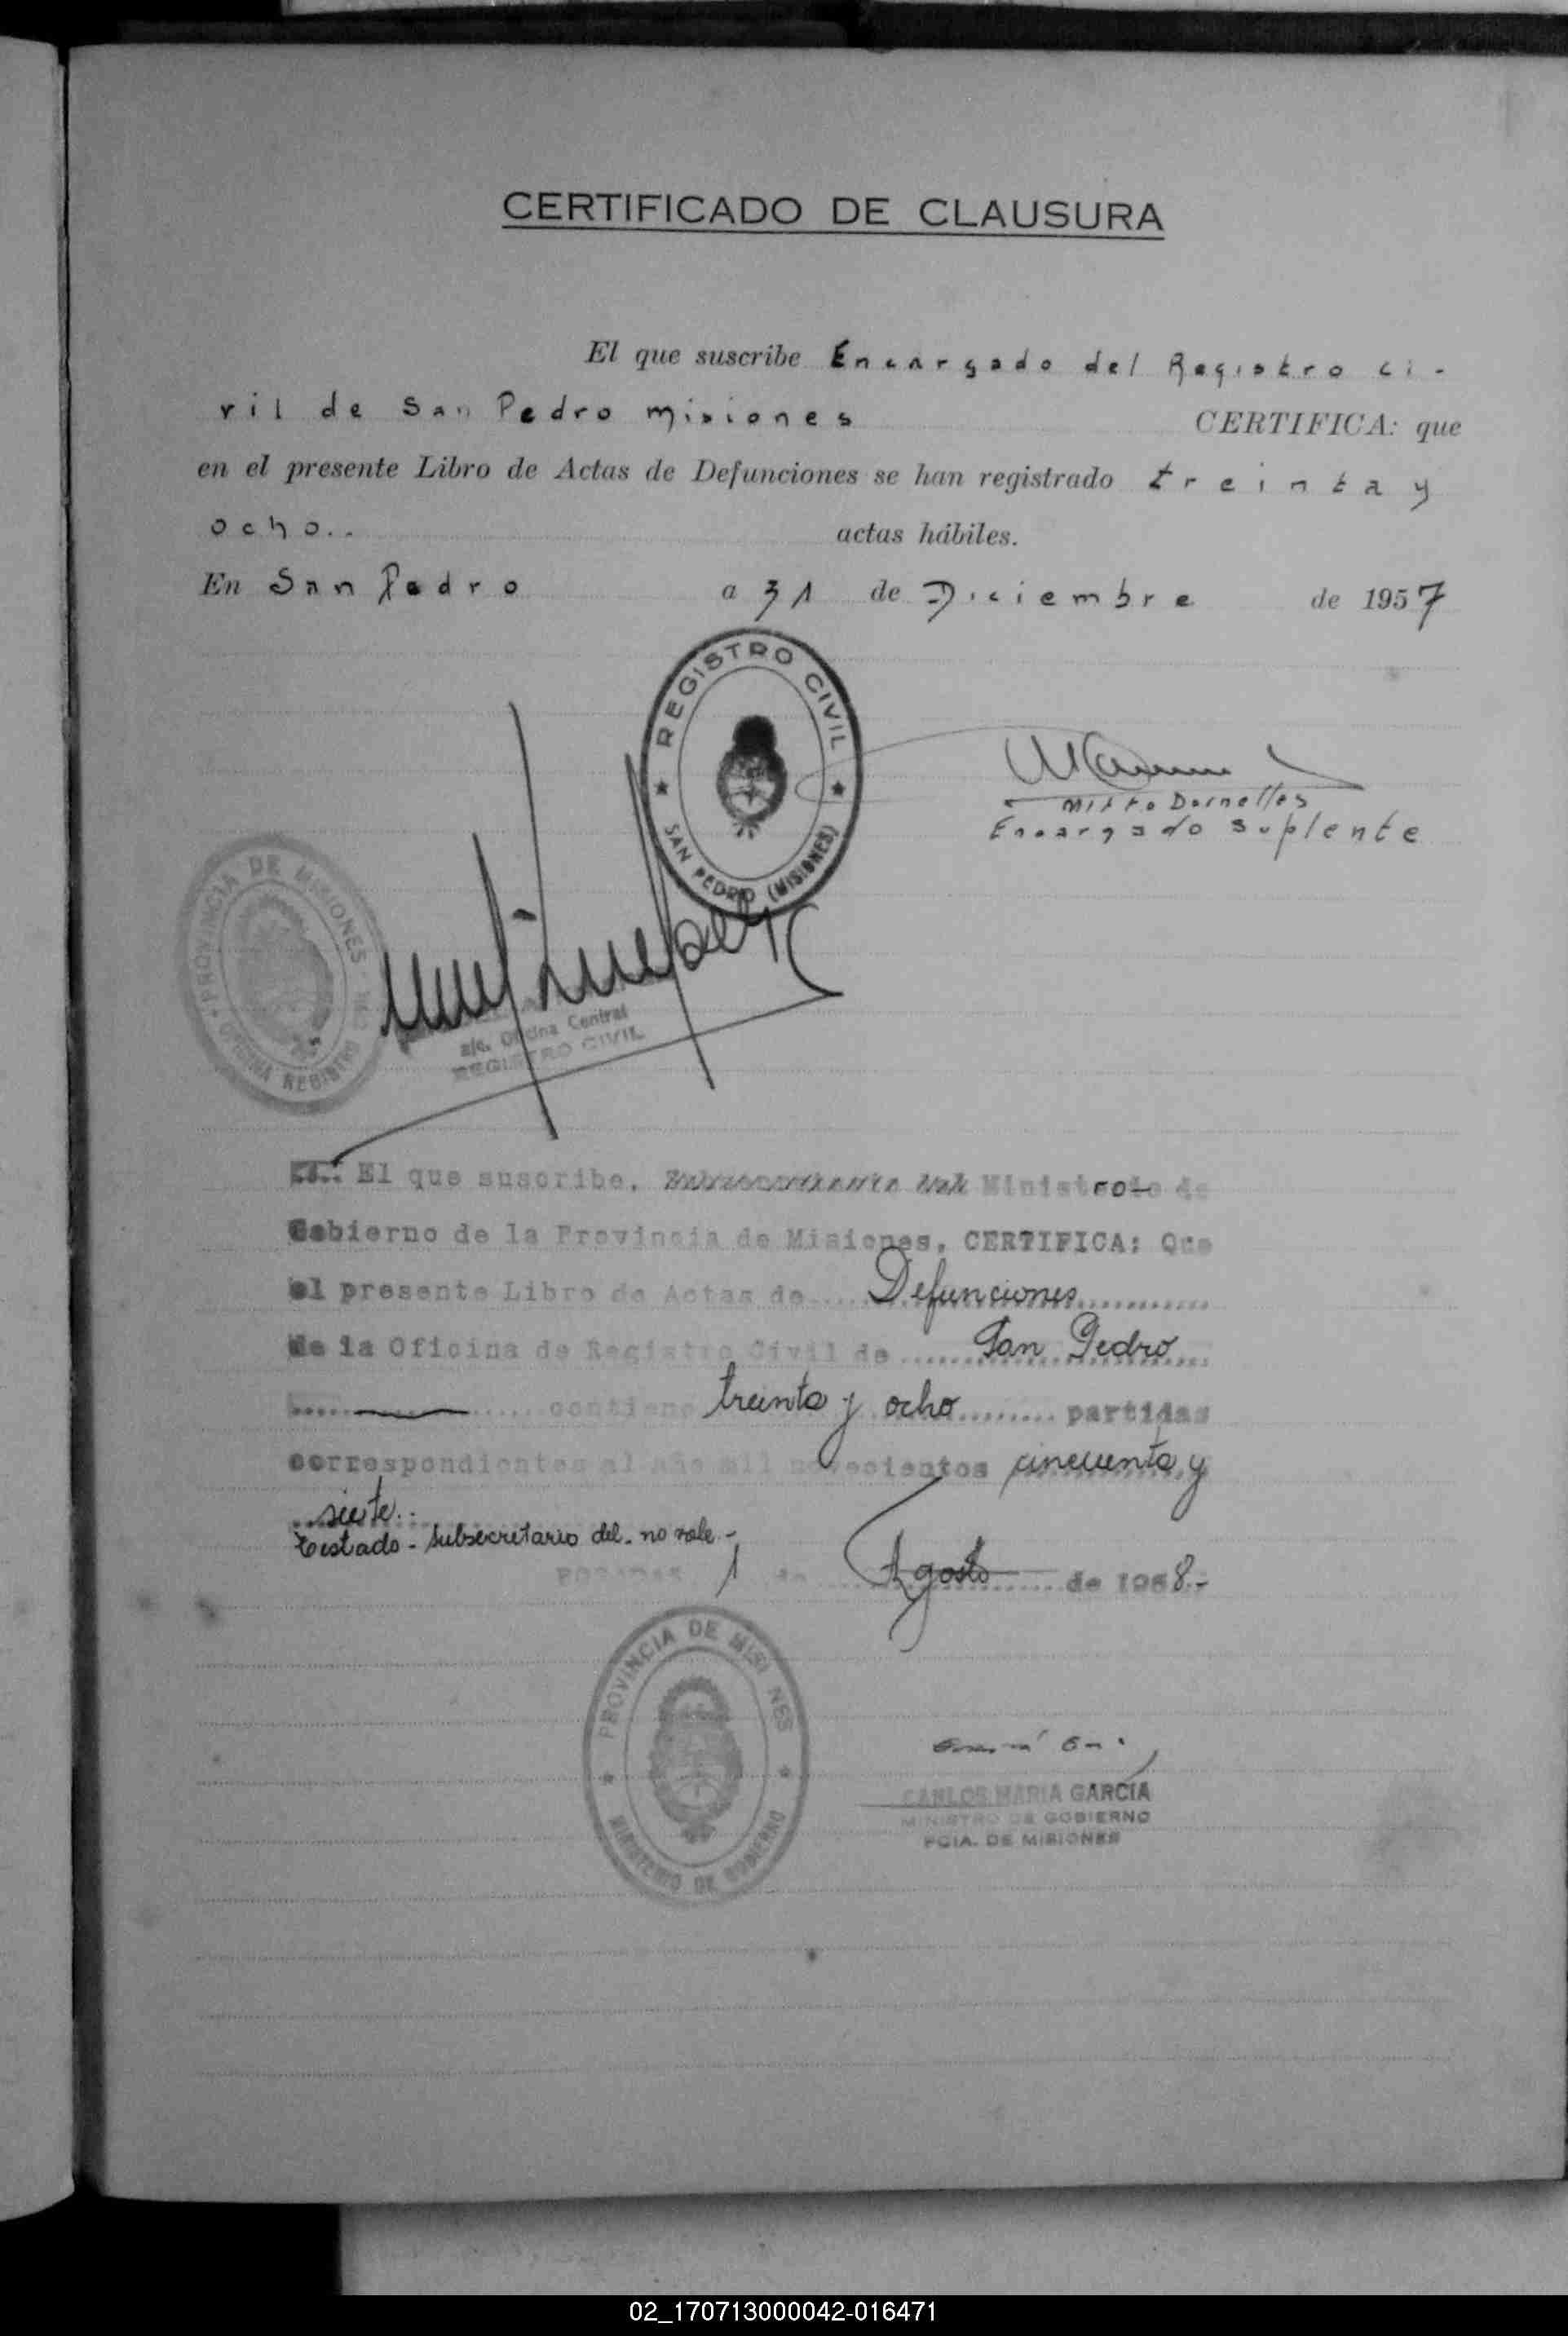 CERTIFICADO DE CLAUSURA
El que suscribe Encargado del Registro ci-
vil de San Pedro Misiones CERTIFICA: que
en el presente Libro de Actas de Defunciones se han registrado treinta y
ocho.. actas hábiles.
En San Pedro a 31 de Diciembre de 1957
REGISTRO CIVIL
SAN PEDRO (MISIONES)
Dornelles
Encargado suplente
PROVINCIA DE MISIONES
OFICINA REGISTRO
a/c. Oficina Central
REGISTRO CIVIL
El que suscribe, Ministro de
Gobierno de la Provincia de Misiones, CERTIFICA: Que
el presente Libro de Actas de Defunciones
de la Oficina de Registro Civil de San Pedro
contiene treinta y ocho partidas
correspondientes al año mil novecientos cincuenta y
siete.-
Testado - subsecretario del - no vale -
POSADAS, 1 de Agosto de 1958.-
PROVINCIA DE MISIONES
MINISTERIO DE GOBIERNO
CARLOS MARIA GARCIA
MINISTRO DE GOBIERNO
PCIA. DE MISIONES
02_170713000042-016471